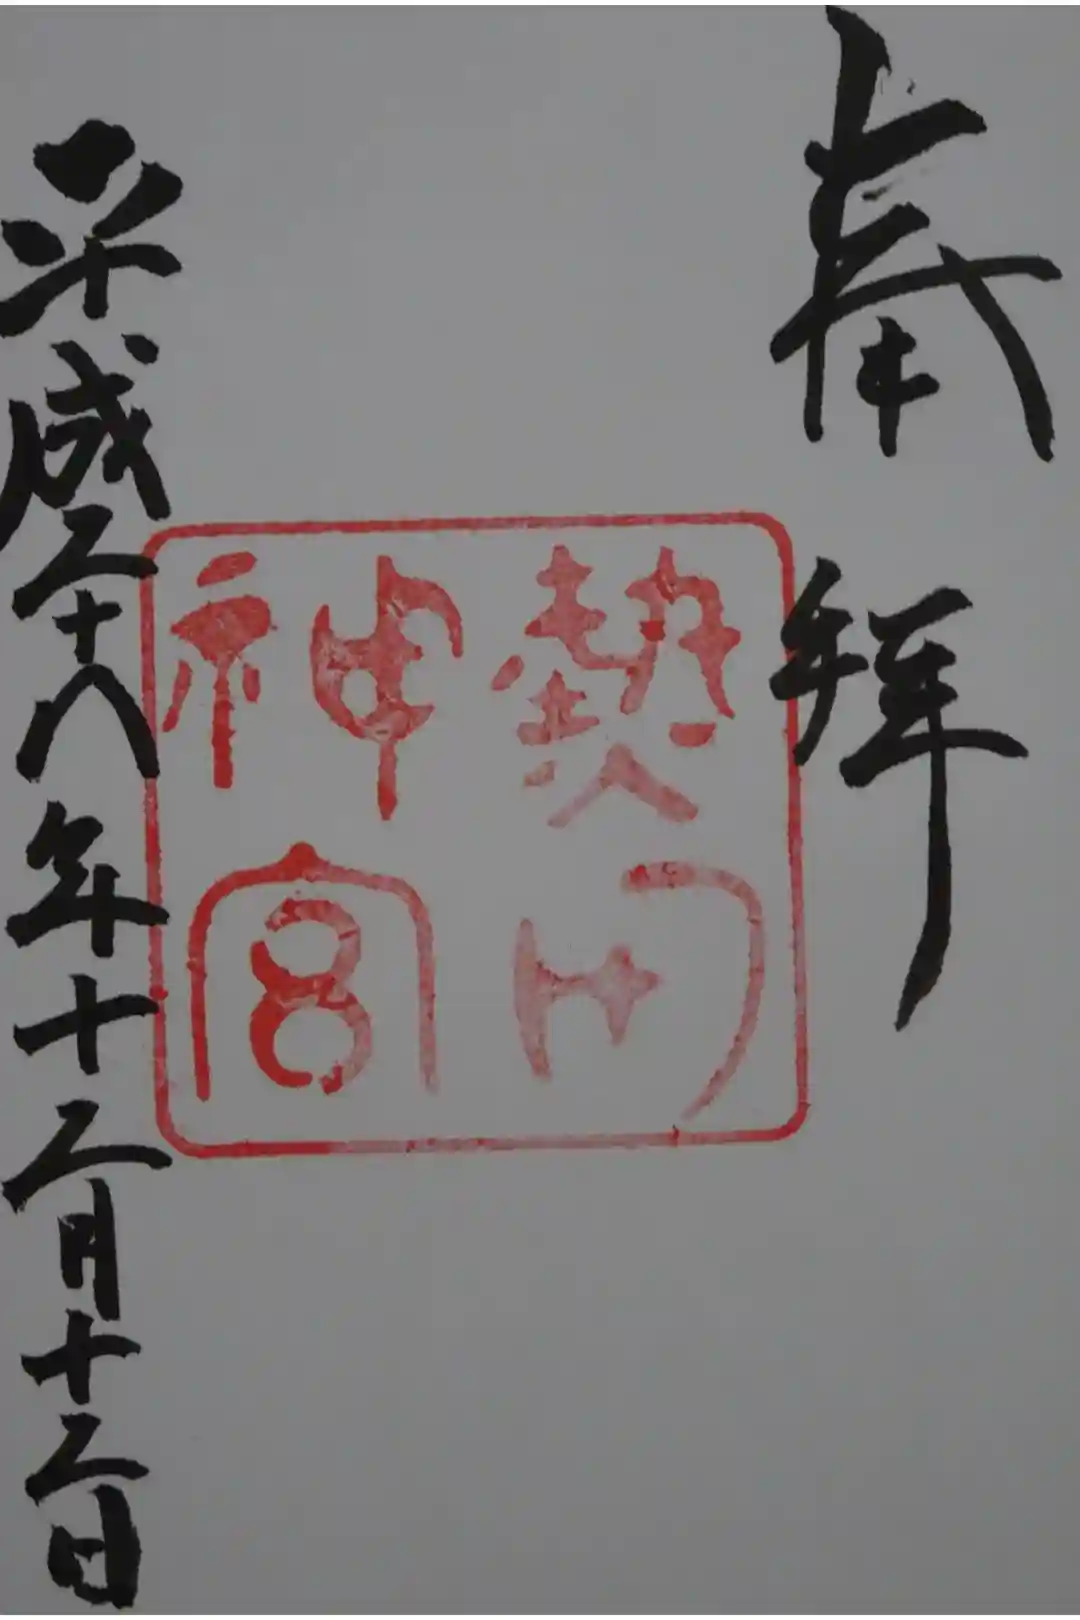 奉拝
熱田
神宮
平成二十八年十二月十二日